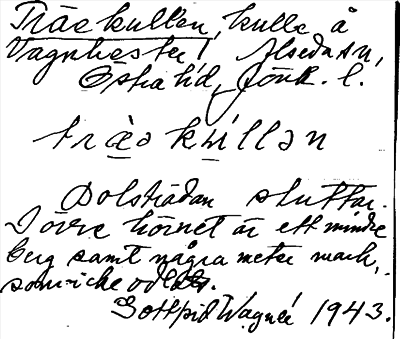 Träekullen, kulle å
Vagnhester, Alseda sn,
Östra hd, Jönk. l.
träo kullan
Solsträdan sluttar.
I övre hörnet är ett mindre
berg samt några meter mark,
som icke odlats.
Gottfrid Wagner 1943.